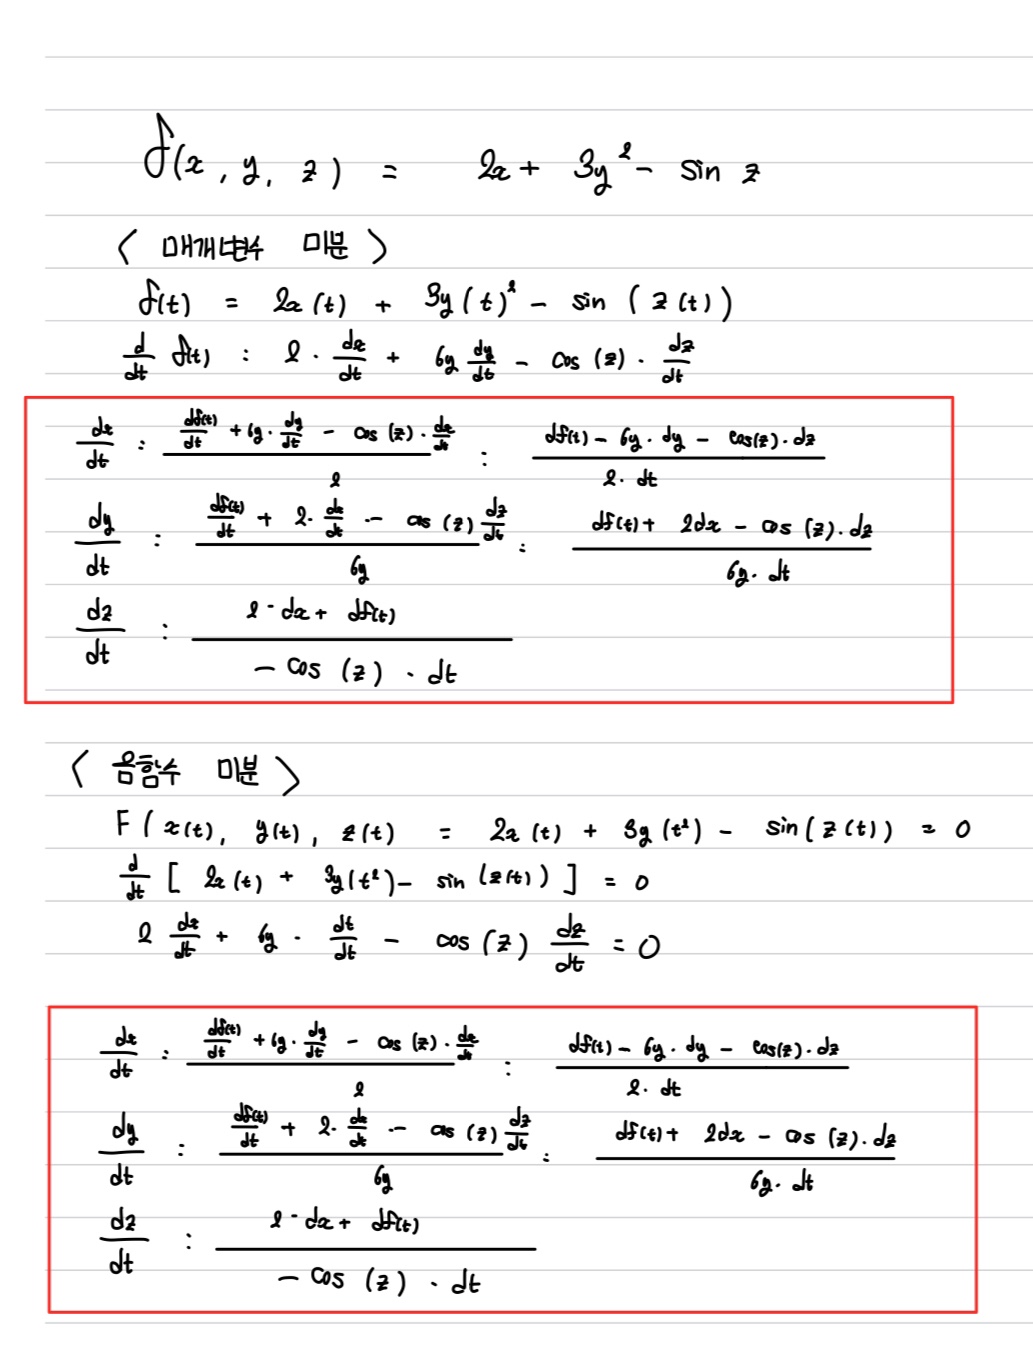 f(x, y, z) = 2x + 3y² - sin z
< 매개변수 미분 >
f(t) = 2x(t) + 3y(t)² - sin(z(t))
d/dt f(t) : 2 · dx/dt + 6y dy/dt - cos(z) · dz/dt
dx/dt : (df(t)/dt + 6y · dy/dt - cos(z) · dz/dt) / 2 : (df(t) - 6y · dy - cos(z) · dz) / (2 · dt)
dy/dt : (df(t)/dt + 2 · dx/dt - cos(z) dz/dt) / 6y : (df(t) + 2dx - cos(z) · dz) / (6y · dt)
dz/dt : (2 · dx + df(t)) / (-cos(z) · dt)
< 음함수 미분 >
F(x(t), y(t), z(t) = 2x(t) + 3y(t²) - sin(z(t)) = 0
d/dt [ 2x(t) + 3y(t²) - sin(z(t)) ] = 0
2 dx/dt + 6y · dt/dt - cos(z) dz/dt = 0
dx/dt : (df(t)/dt + 6y · dy/dt - cos(z) · dz/dt) / 2 : (df(t) - 6y · dy - cos(z) · dz) / (2 · dt)
dy/dt : (df(t)/dt + 2 · dx/dt - cos(z) dz/dt) / 6y : (df(t) + 2dx - cos(z) · dz) / (6y · dt)
dz/dt : (2 · dx + df(t)) / (-cos(z) · dt)